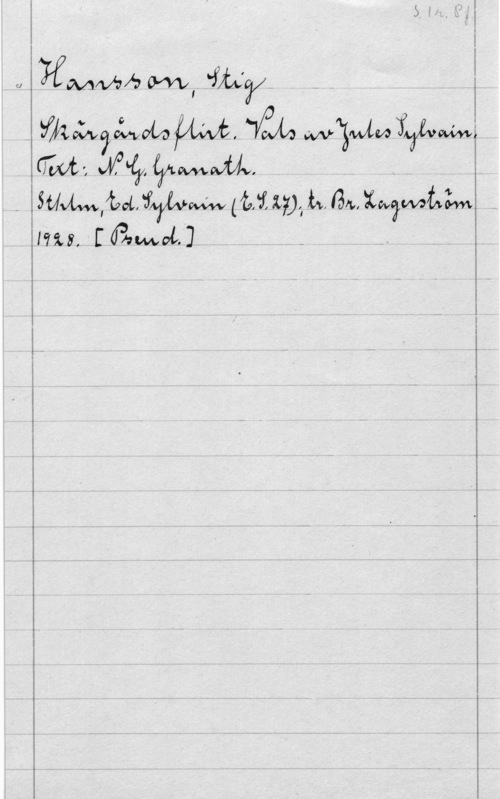 S. Tr. Pf
Hansson, Stig
Skärgårdsflirt. Vals av Jules Sylvain.
Text: N. G. Granath.
Sthlm, Ed. Sylvain (E. S. 27), tr. Br. Lagerström
1928. [Pseud.]